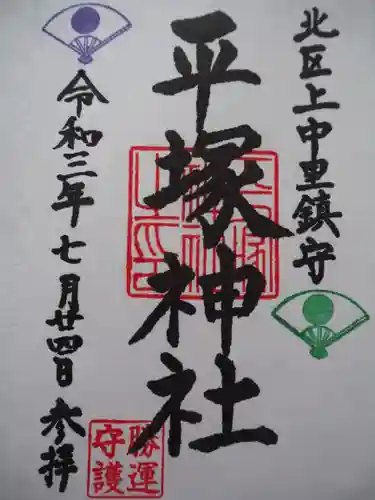 北区上中里鎮守
平塚神社
令和三年七月廿四日 参拝
勝運
守護